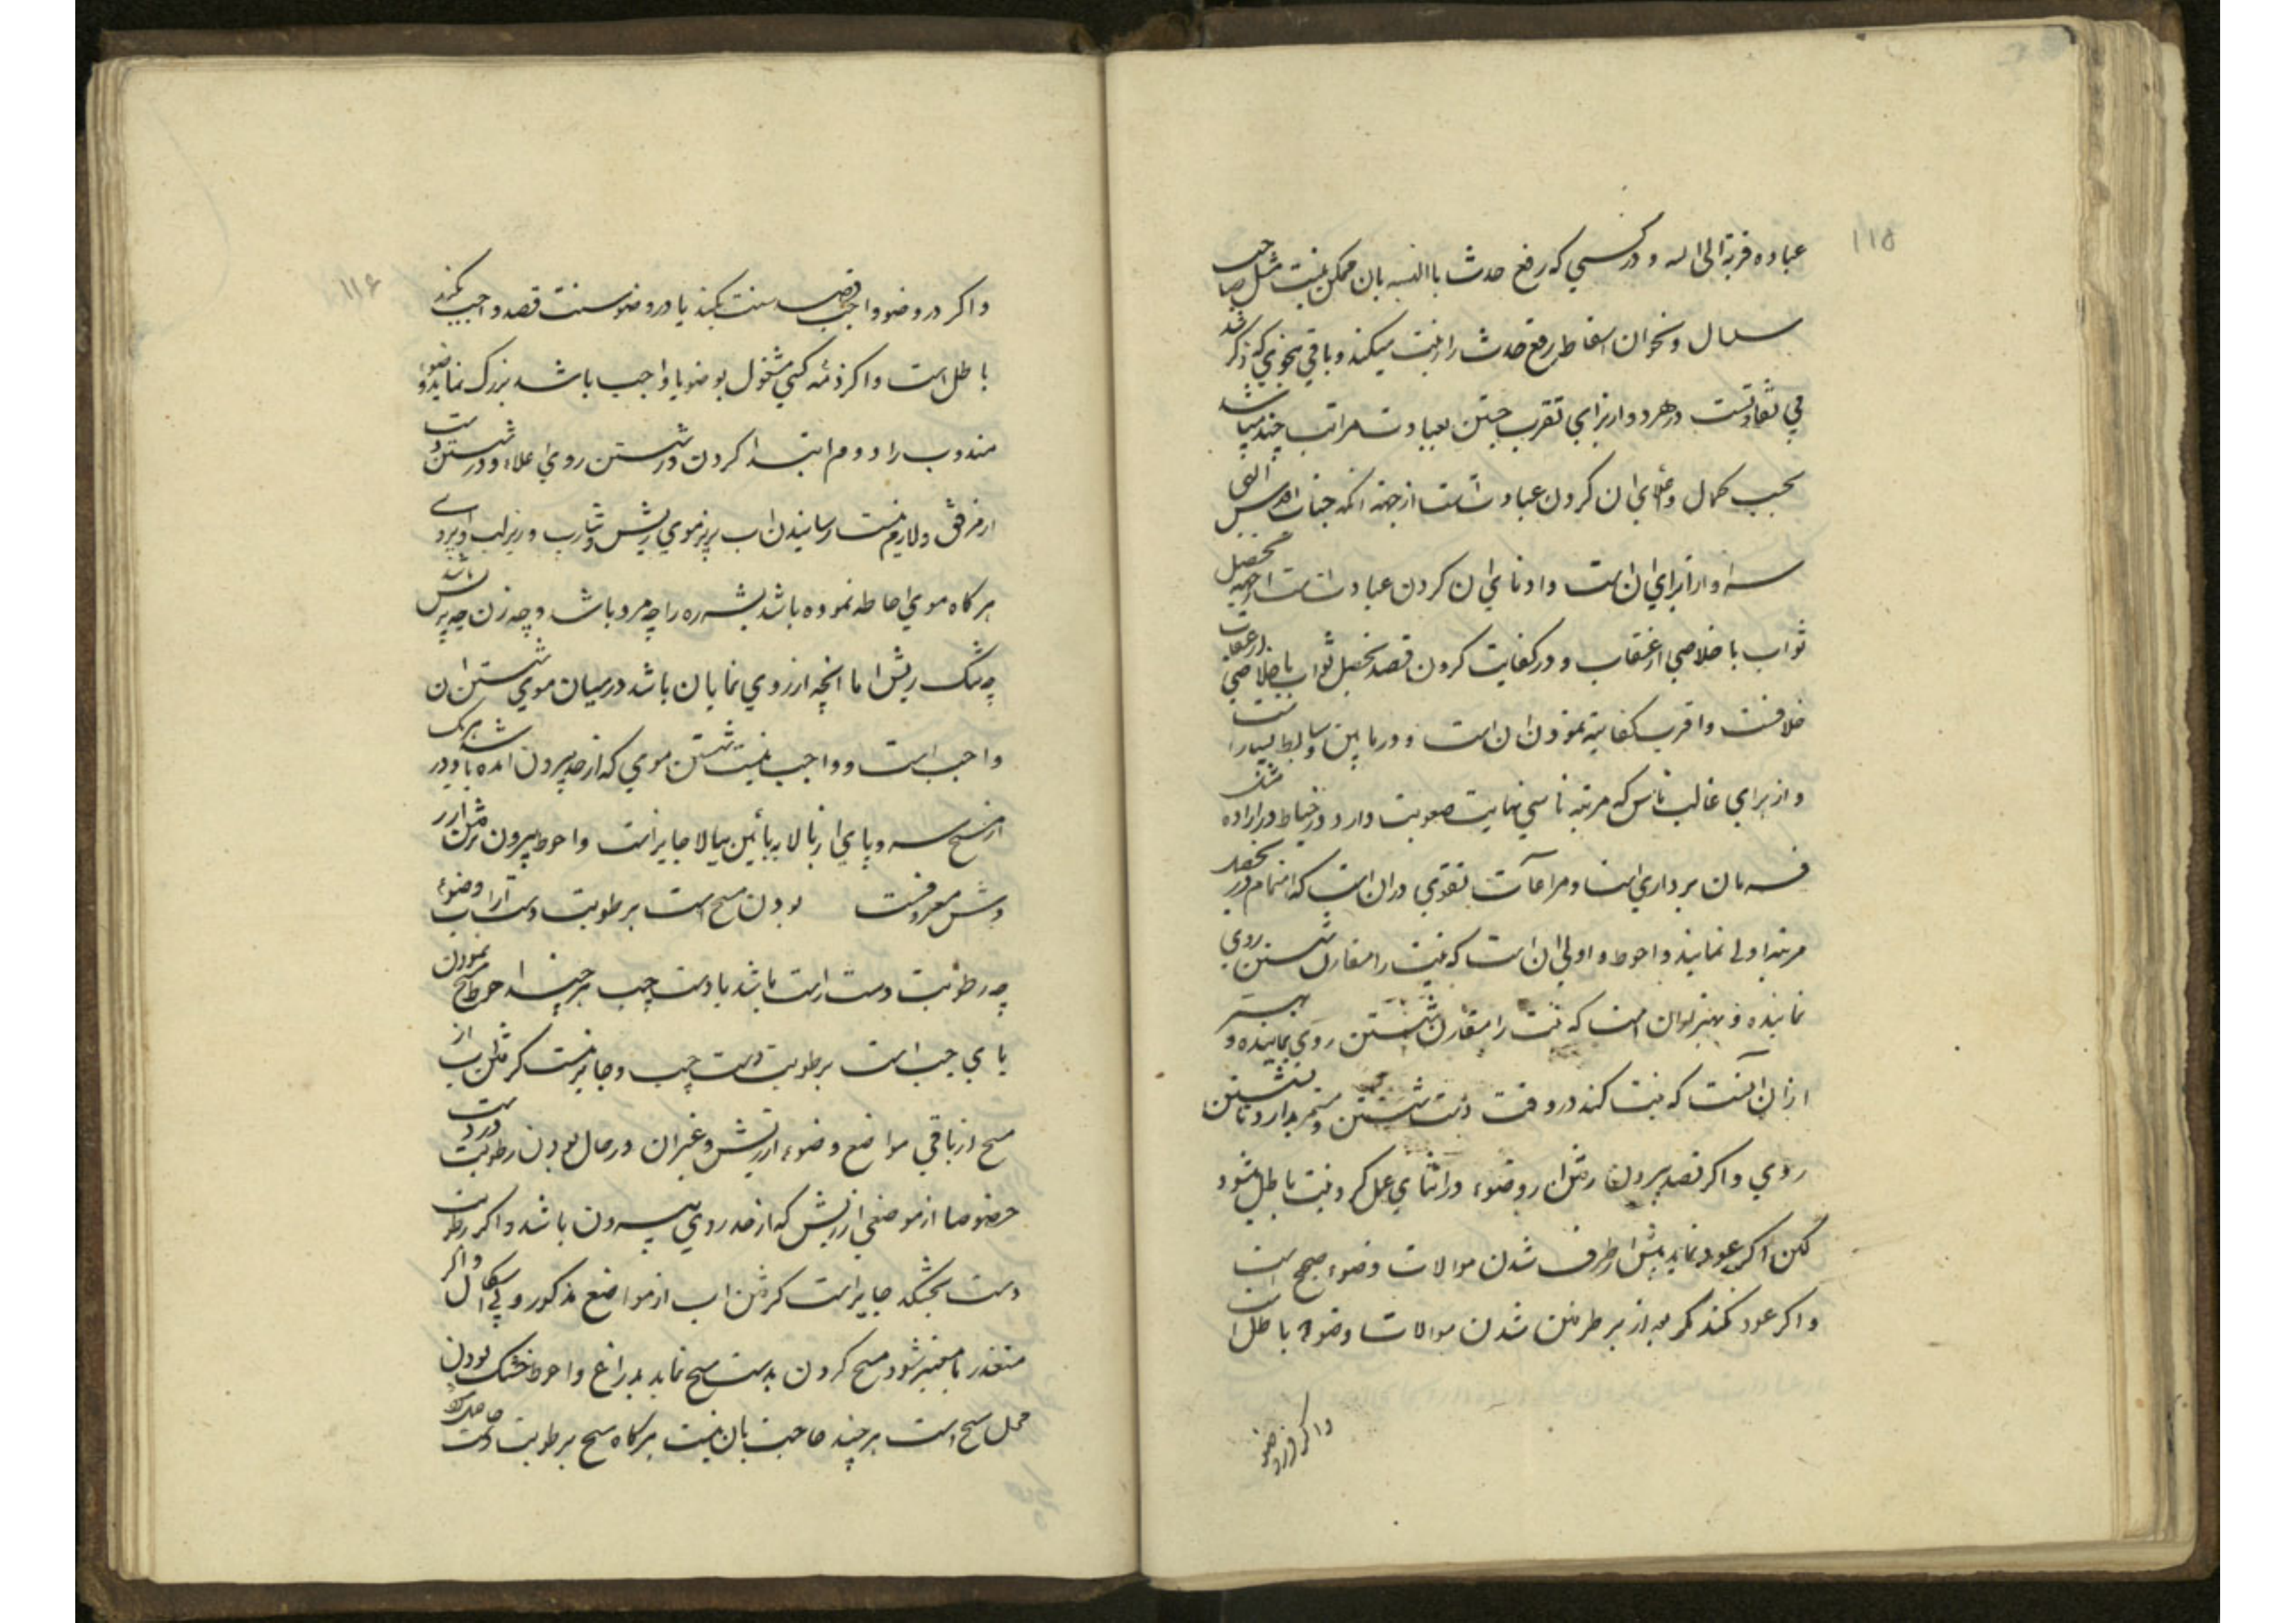 ۱۱۵
عباده قربة الی الله و در کسی که رفع حدث با النسبه بان ممکن نیست مثل صاحب
سلسال و نحوان اسقاط رفع حدث را نیت میکند و باقی بنحوی که ذکر شد
بی تفاوتست در هر دو و از برای تقرب جستن بعبادت مراتب چند میباشد
بحسب کمال و اعلای ان کردن عبادتست از جهته انکه جناب اقدس الهی
سزاوار از برای ان است و ادنای ان کردن عبادتست از جهة تحصیل
ثواب با خلاصی از عقاب و در کفایت کردن قصد تحصیل ثواب یا خلاصی از عقاب
خلافست و اقرب کفایته نمودن ان است و در مابین وسایط بسیار است
و از برای غالب ناس که مرتبه ناسی نهایت صعوبت دارد و احتیاط در اراده
فرمان برداری است و مراعآت تقوی در ان است که اهتمام در
مرتبه اولی نمایند و احوط و اولی ان است که نیت را مقارن شستن روی
نمایند و بهتر از ان است که نیت را مقارن شستن روی نمایند و بهتر
از ان آنست که نیت کند در وقت دست شستن و مستمر بدارد تا شستن
روی و اگر قصد بیرون رفتن از وضوء در اثنای عمل کرد نیت باطل میشود
لکن اکر عود نماید پیش از طرف شدن موالات وضوء صحیح است
و اکر عود نکند مکر بعد از بر طرف شدن موالات وضوء باطل است
و اکر در وضو
۱۱۶
و اکر در وضوء واجب قصد سنت بکند یا در وضو سنت قصد واجب بکند
باطل است و اکر ذمّه کسی مشغول بوضوء واجب باشد ترک نماید وضوء
مندوب را دوم ابتدا کردن در شستن روی از اعلا و در شستن دست
از مرفق و لازم نیست رسانیدن اب بزیر موی ریش و شارب و زیر لب و ابروی
هر کاه موی احاطه نموده باشد بشره را چه مرد باشد و چه زن چه پر ریش باشد
چه تنک ریش اما انچه از روی نمایان باشد در میان موی شستن ان
واجب است و واجب نیست شستن موی که از حد بیرون امده باشد و در هر یک
از مسح سر و پای از بالا به پائین بیالا جایز است و احوط بیرون نرفتن از
روش معروفست بودن مسح است برطوبت دست از اب وضوء
چه رطوبت دست راست باشد یا دست چپ هر چند احوط مسح نمودن
پای چپ است برطوبت دست چپ و جایز نیست کرفتن اب از
مسح از باقی مواضع وضوء از ریش و غیر ان در حال بودن رطوبت در دست
خصوصا از موضعی از ریش که از حد روی بیرون باشد و اکر رطوبت
دست بخشکد جایز است کرفتن اب از مواضع مذکور و بی اشکال و اکر
متعذر یا متعسر شود مسح کردن بدست مسح نماید بذراع و احوط خشک بودن
محل مسح است هر چند حاجت بان نیست هر کاه مسح برطوبت دست حاصل شود